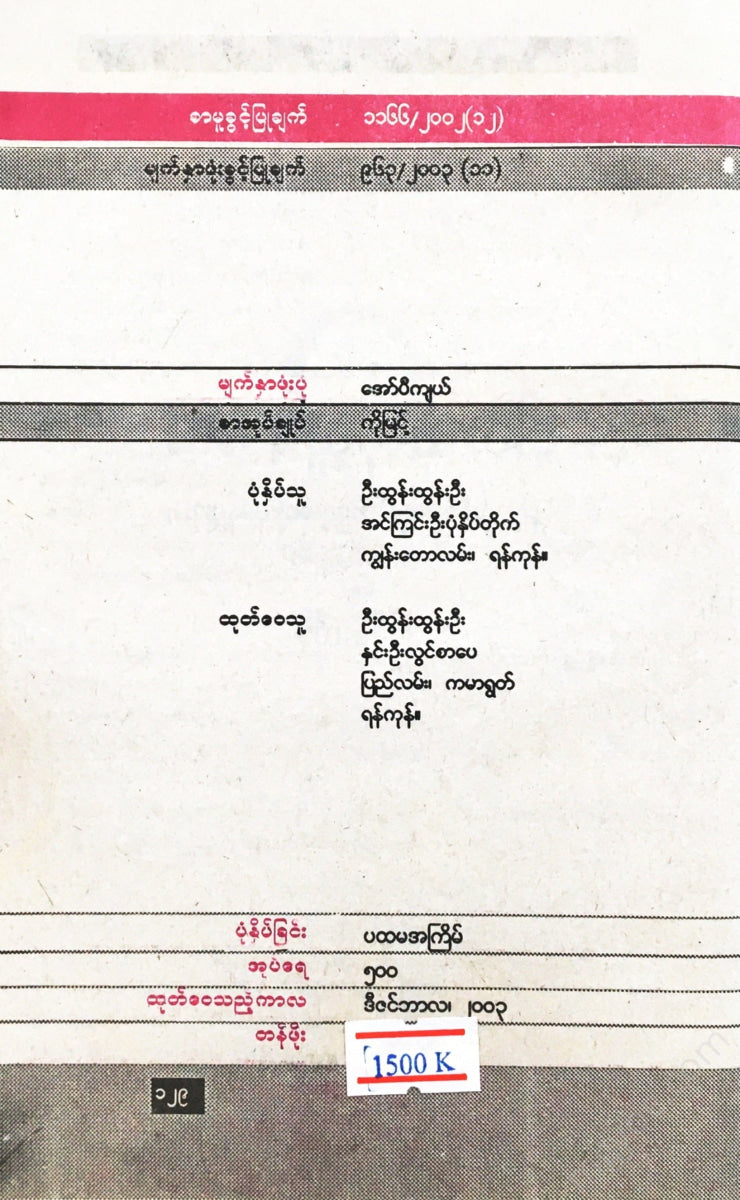 စာမူခွင့်ပြုချက် ၁၁၆၆/၂၀၀၂(၁၂)
မျက်နှာဖုံးခွင့်ပြုချက် ၉၆၃/၂၀၀၃ (၁၁)
မျက်နှာဖုံးပုံ အော်ပီကျယ်
စာအုပ်ချုပ် ကိုမြင့်
ပုံနှိပ်သူ ဦးထွန်းထွန်းဦး
အင်ကြင်းဦးပုံနှိပ်တိုက်
ကျွန်းတောလမ်း၊ ရန်ကုန်။
ထုတ်ဝေသူ ဦးထွန်းထွန်းဦး
နှင်းဦးလွင်စာပေ
ပြည်လမ်း၊ ကမာရွတ်
ရန်ကုန်။
ပုံနှိပ်ခြင်း ပထမအကြိမ်
အုပ်ရေ ၅၀၀
ထုတ်ဝေသည့်ကာလ ဒီဇင်ဘာလ၊ ၂၀၀၃
တန်ဖိုး 1500 K
၁၂၉